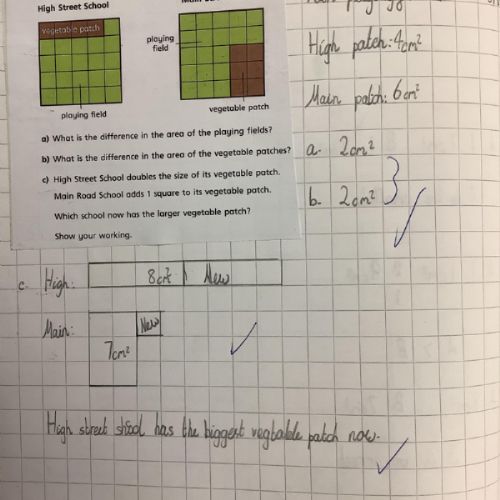 High Street School
vegetable patch
playing field
playing field
vegetable patch
a) What is the difference in the area of the playing fields?
b) What is the difference in the area of the vegetable patches?
c) High Street School doubles the size of its vegetable patch.
Main Road School adds 1 square to its vegetable patch.
Which school now has the larger vegetable patch?
Show your working.
High patch: 4cm²
Main patch: 6cm²
a. 2cm²
b. 2cm²
c. High: 8cm² New
Main: New
7cm²
High street shool has the biggest vegtable patch now.